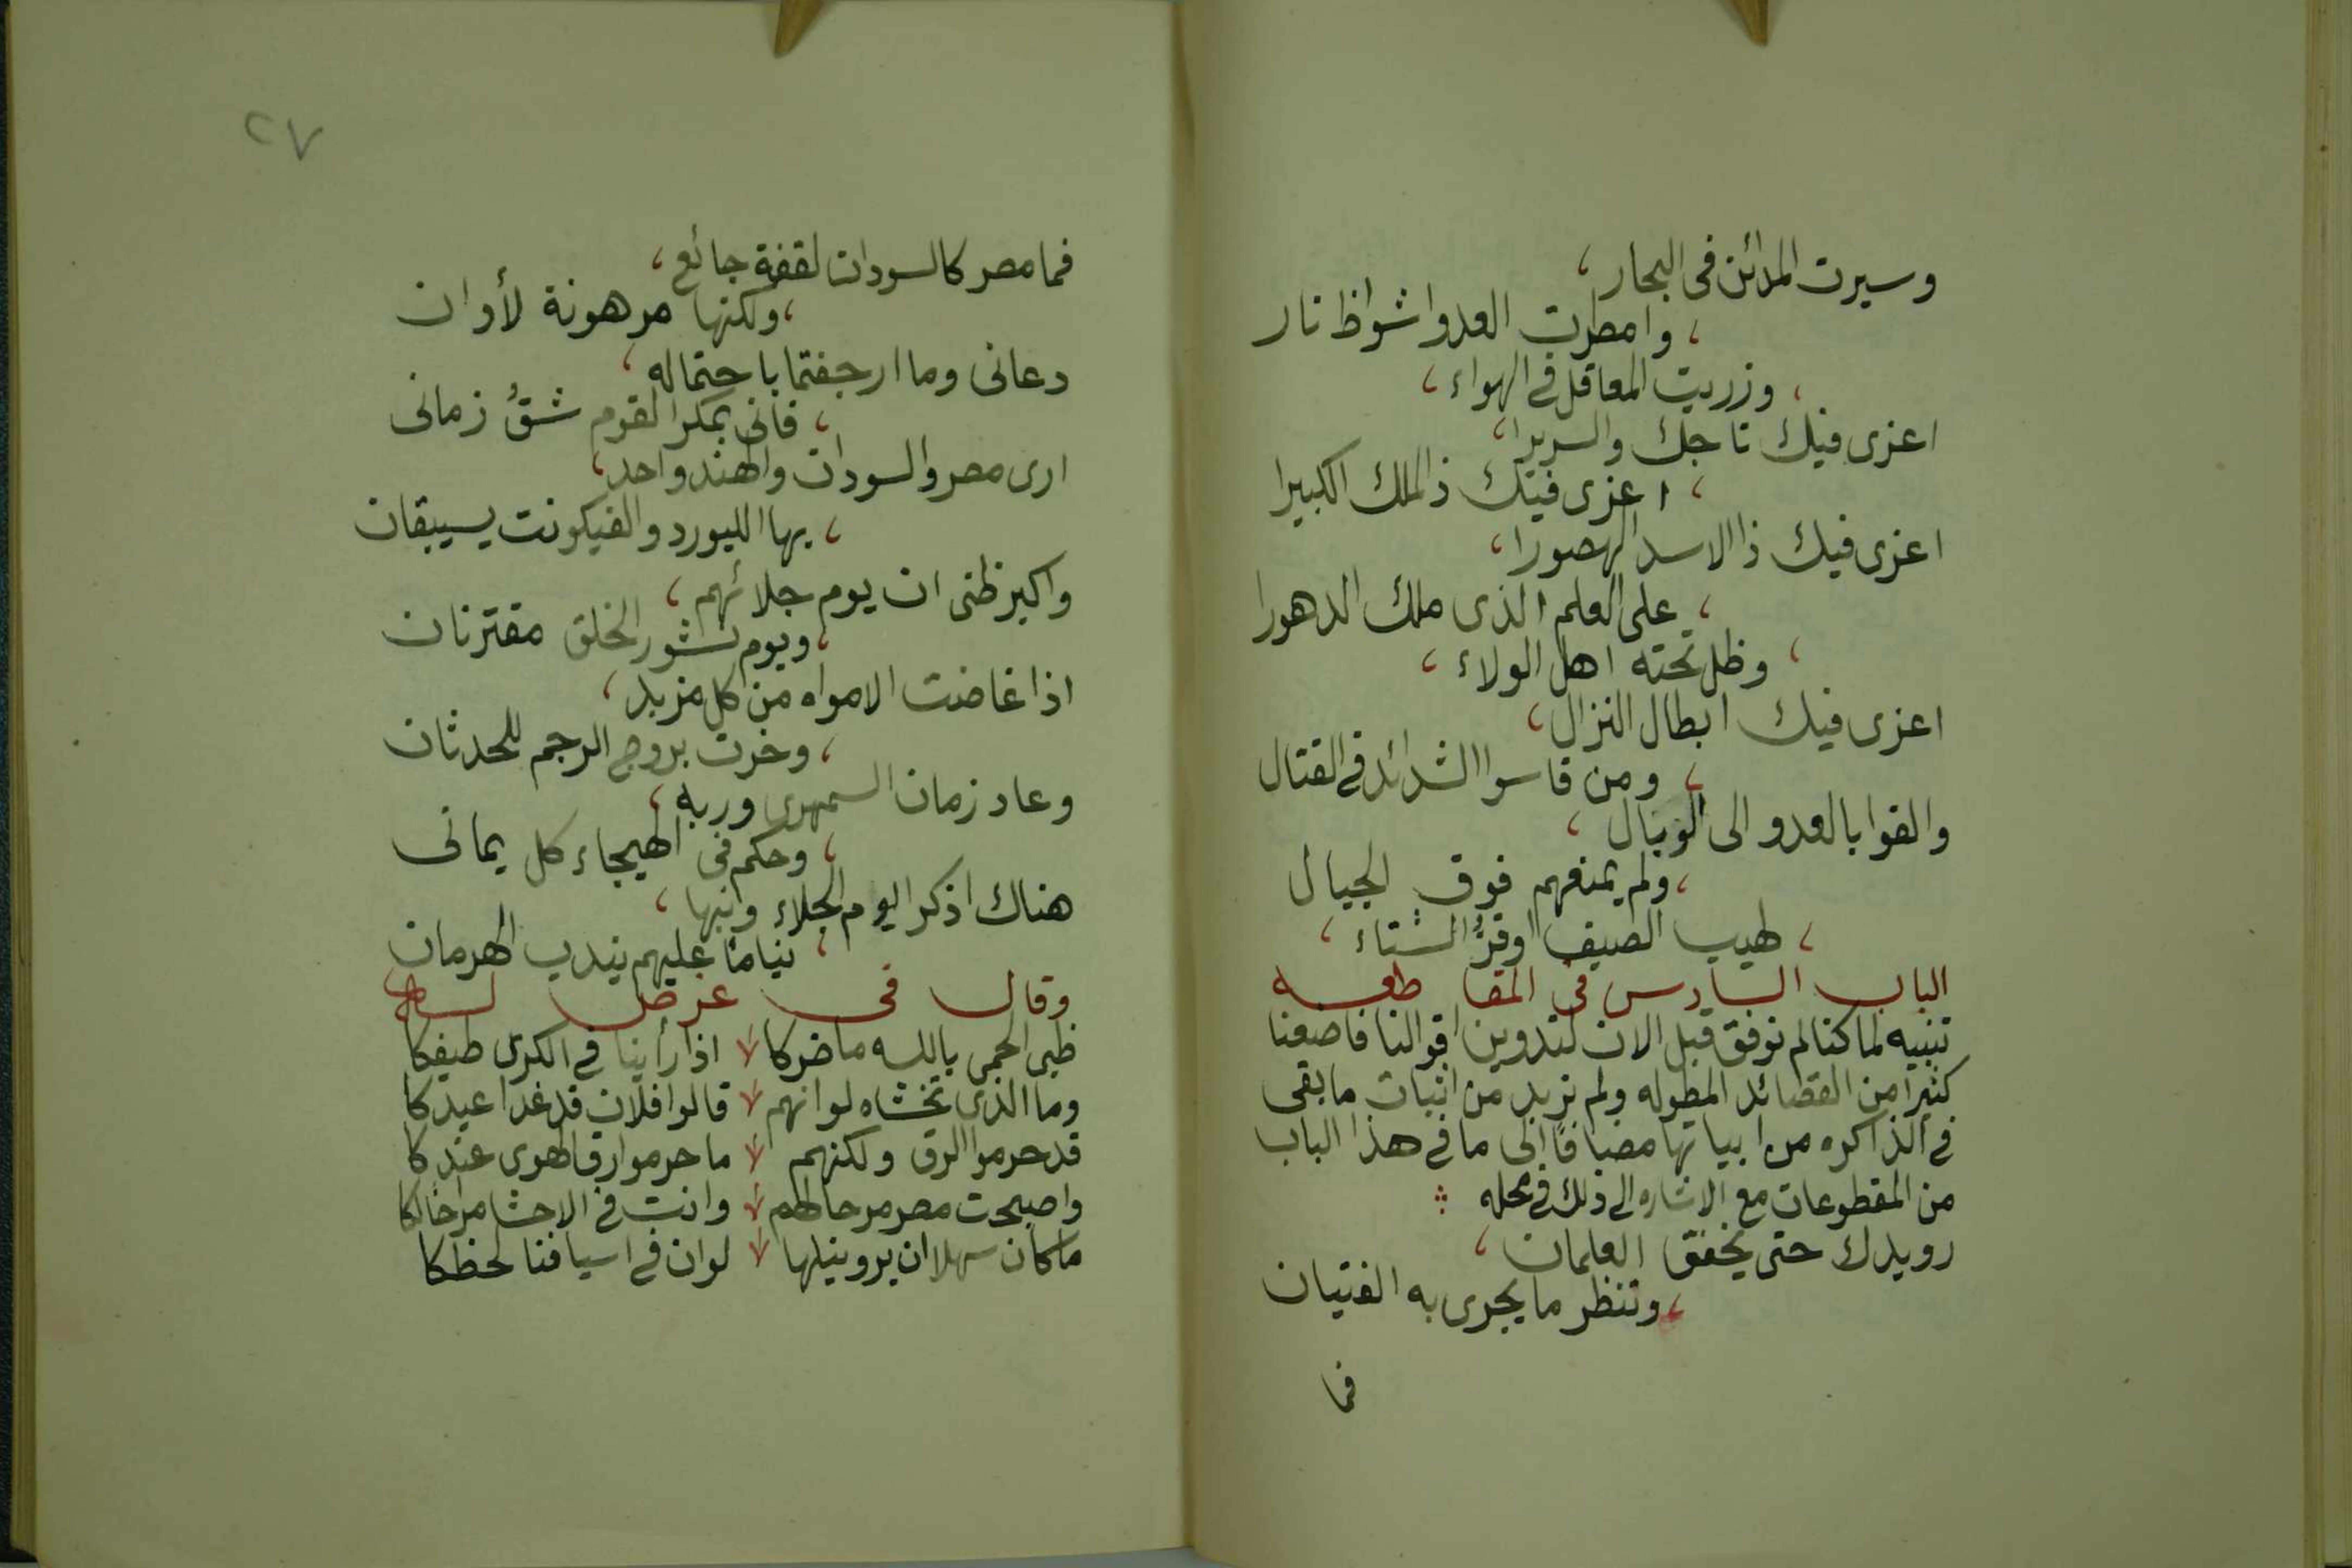 وسيرت المدائن فى البحار،
، وامطرت العدوا شواظ نار
، وزريت المعاقل فى الهواء،
اعزى فيك تاجك والسريرا،
، اعزى فيك ذا الملك الكبيرا
اعزى فيك ذا الاسد الهصورا،
، على العلم الذى ملك الدهورا
، وظل تحته اهل الولاء،
اعزى فيك ابطال النزال،
، ومن قاسوا الشدائد فى القتال
والقوا بالعدو الى الوبال،
، ولم يمنعهم فوق الجبال
، لهيب الصيف او قرُّ الشتاء،
الباب السادس فى المقا طعه
تنبيه لما كنا لم نوفق قبل الان لتدوين اقوالنا فاضعنا
كثيرًا من القصائد المطوله ولم نزيد من اثبات ما بقى
فى الذاكره من ابياتها مضافًا الى ما فى هذا الباب
من المقطوعات مع الاشاره الى ذلك فى محله
رويدك حتى يخفق العلمان،
، وتنظر ما يجرى به الفتيان
فما
٢٧
فما مصر كالسودان لقفة جائع،
، ولكنها مرهونة لأوان
دعانى وما ارجفتما باحتماله،
، فانى بمكر القوم شقُّ زمانى
ارى مصر والسودان والهند واحد،
، بها الليورد والفيكونت يستبقان
واكبر ظنى ان يوم جلائهم،
، ويوم نشور الخلق مقترنان
اذا غاضت الامواه من كل مزبد،
، وخرت بروج الرجم للحدثان
وعاد زمان السمهرى وربه،
، وحكم فى الهيجاء كل يمانى
هناك اذكر اليوم الجلاء وانبها،
، نيامًا عليهم يندب الهرمان
وقال فى عرض له
ظبى الحمى بالله ما ضركا اذا رأينا فى الكرى طيفكا
وما الذى تخشاه لو انهم قالوا فلان قد غدا عبدكا
قد حرموا الرق ولكنهم ما حرموا رق الهوى عندكا
واصبحت مصر مرحا لهم وانت فى الاحشا مراحا لكا
ما كان سهلا ان يروا نيلها لو ان فى اسيافنا لحظكا